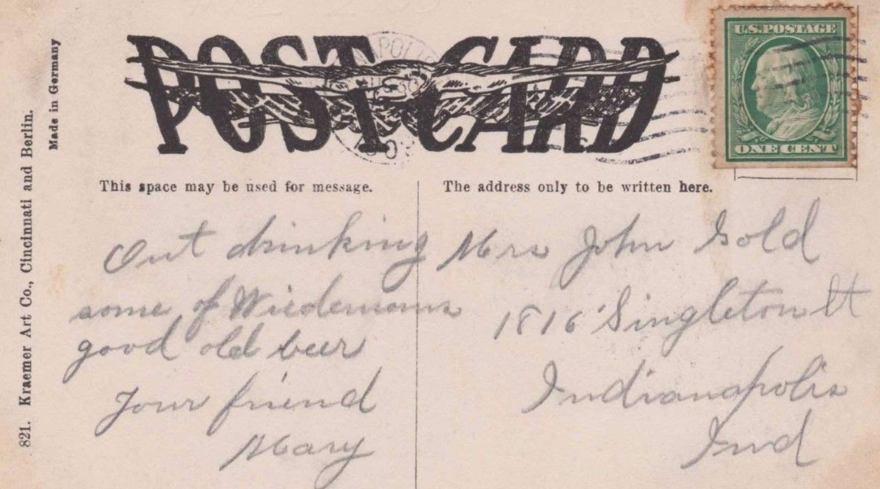 POST CARD
U.S. POSTAGE
ONE CENT
This space may be used for message.
The address only to be written here.
Out drinking
some of Wiedemanns
good old beer
Your friend
Mary
Mrs John Gold
1816 Singleton St
Indianapolis
Ind
821. Kraemer Art Co., Cincinnati and Berlin.
Made in Germany